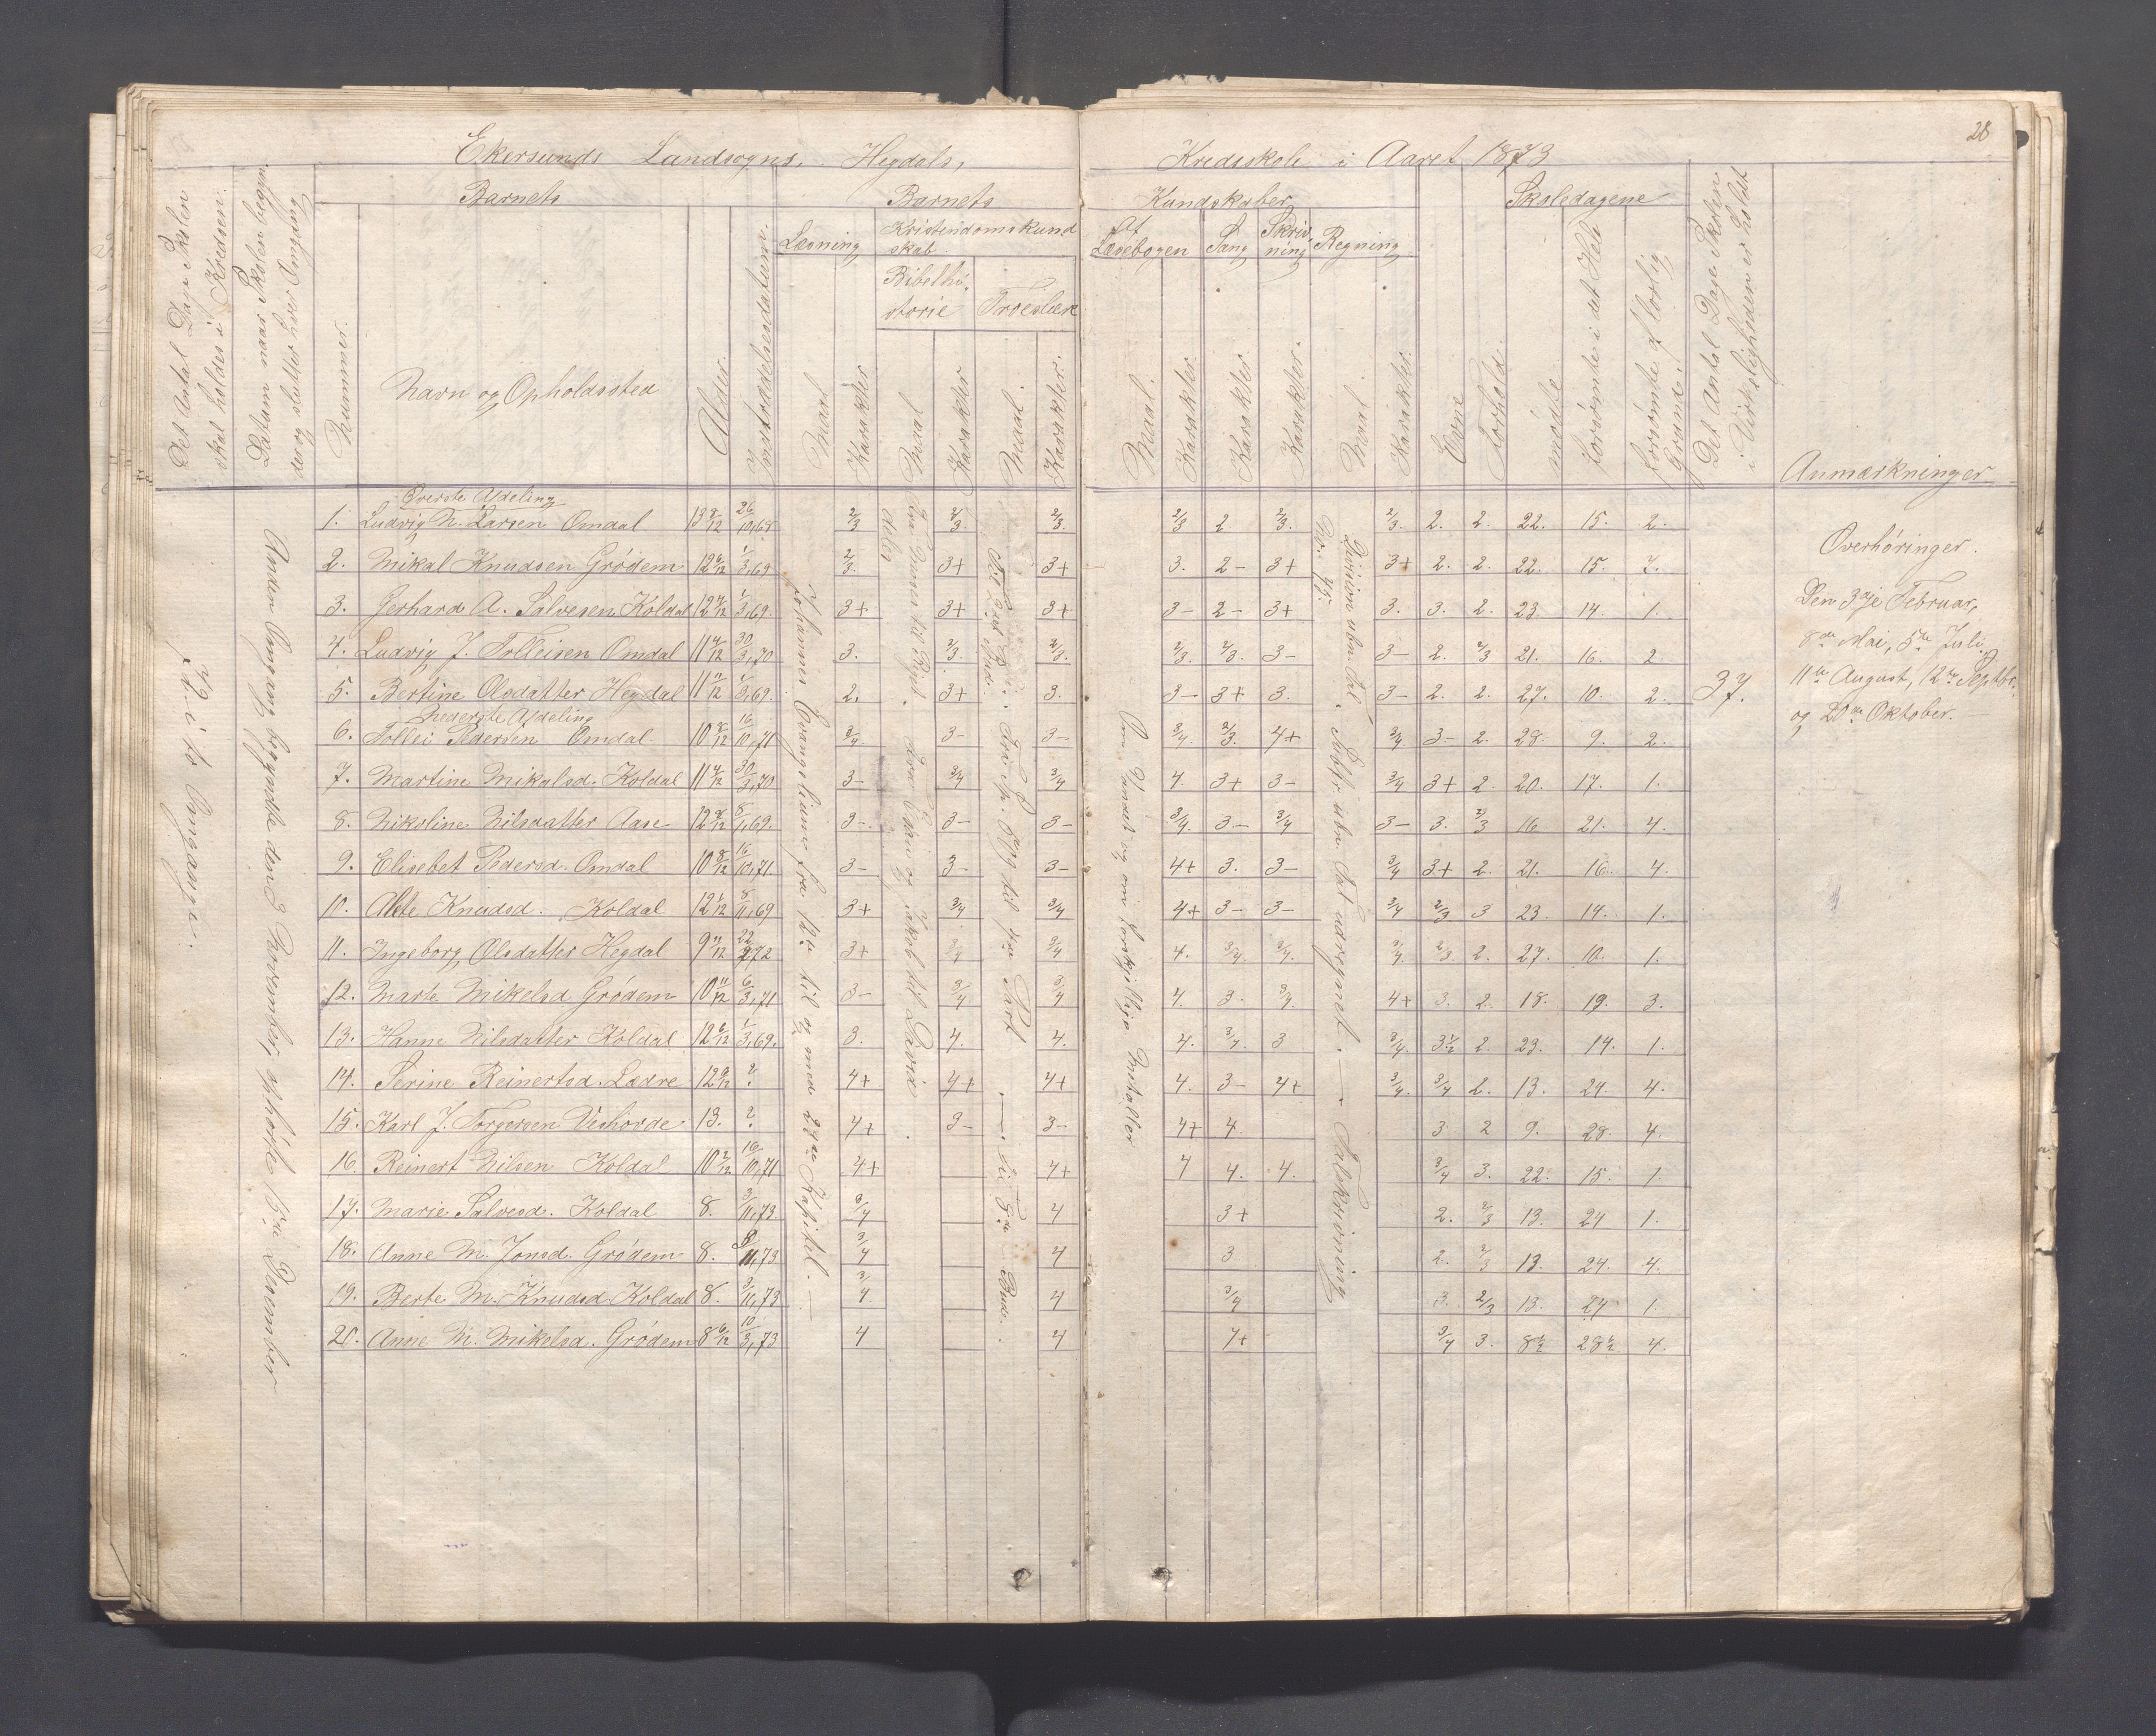 28
Ekersunds Landsogns, Hegdals, Kredsskole i Aaret 1873
Det Antal Dage Skolen
skal holdes i Kredsen.
Datum naar Skolen begyn-
der og slutter hver Omgang
Barnets
Nummer.
Navn og Opholdssted
Alder.
Indtrædelsesdatum.
Barnets Kundskaber
Læsning
Maal
Karakter
Kristendomskund
skab
Bibelhi-
storie
Maal
Karakter
Troeslære
Maal.
Karakter.
Af
Læsebogen
Maal.
Karakter
Sang
Karakter.
Skriv-
ning
Karakter.
Regning
Maal
Karakter.
Evne
Forhold.
Skoledagene
mødte
forsømte i det Hele
forsømte af lovlig
Grund.
Det Antal Dage Skolen
i Virkeligheden er holdt
Anmærkninger
Øverste Afdeling
1. Ludvig N. Larsen Omdal 13 8/12 26/10,68 2/3 2/3. 2/3. 2/3 2 2/3. 2/3. 2. 2. 22. 15. 2.
2. Mikal Knudsen Grødem 12 6/12 1/3,69 2/3. 3+ 3+ 3. 2- 3+ 3+ 2. 2. 22. 15. 2.
3. Gerhard A. Salvesen Koldal 12 4/12 1/3,69. 3+ 3+ 3+ 3- 2- 3+ 3. 3. 2. 23. 14. 1.
4. Ludvig J. Tolleisen Omdal 11 4/12 30/3,70 3. 2/3. 2/3. 2/3. 2/3. 3- 3- 2. 2/3 21. 16. 2
5. Bertine Olsdatter Hegdal 11 11/12 1/3,69. 2. 3+ 3. 3- 3+ 3. 3- 2. 2. 27. 10. 2.
Nederste Afdeling
6. Tollei Pedersen Omdal 10 8/12 16/10,71 3/4. 3- 3- 3/4. 2/3. 4+ 3/4. 3- 2. 28. 9. 2.
7. Martine Mikalsd. Koldal 11 4/12 30/3,70 3- 3/4 3/4 4. 3+ 3- 3/4 3+ 2 20. 17. 1.
8. Nikoline Nilsdatter Aase 12 2/12 8/11,69. 3-. 3- 3- 3/4. 3- 3/4 3- 3. 2/3 16 21. 4.
9. Elisebet Pedersd. Omdal 10 8/12 16/10,71. 3- 3- 3- 4+ 3. 3- 3/4 3+ 2. 21. 16. 4.
10. Alete Knudsd. Koldal 12 1/12 8/11,69 3+ 3/4 3/4 4+ 3- 3- 3/4 2/3 3 23. 14. 1.
11. Ingeborg Olsdatter Hegdal 9 11/12 22/2,72 3+ 3/4 3/4 4. 3/4. 3/4. 3/4. 2/3. 2. 27. 10. 1.
12. Marte Mikelsd Grødem 10 11/12 6/3,71 3- 3/4 3/4 4. 3. 3/4. 4+ 3. 2. 18. 19. 3.
13. Hanne Nilsdatter Koldal 12 6/12 1/3,69. 3. 4. 4. 4. 3/4. 3 3/4. 3 1/2 2. 23. 14. 1.
14. Serine Reinertsd. Ladre 12 9/12 ? 4+ 4+ 4+ 4. 3- 4+ 3/4. 3/4 2. 13. 24. 4.
15. Karl J. Torgersen Veshovde 13. ? 4+ 3- 3- 4+ 4. 3. 2 9. 28. 4.
16. Reinert Nilsen Koldal 10 2/12 16/10,71 4+ 4+ 4 4. 4. 3/4 3. 22. 15. 1.
17. Marie Salvesd. Koldal 8. 3/11,73 3/4 4 3+ 2. 2/3 13. 24 1.
18. Anne M. Jonsd. Grødem 8. 8/11,73 3/4 4 3 2. 2/3 13. 24. 4.
19. Berte M. Knudsd Koldal 8. 3/11,73 3/4. 4 3/4 3. 2/3 13. 24 1.
20. Anne M. Mikelsd. Grødem 8 6/12 10/3,73 4 4 4+ 3/4 3. 8 1/2 28 1/2 4.
i to Omgange.
Anden Omgang begyndte den 3 November, ophørte 15de Desember
Johannes Evangelium fra 12te til og med 28de Kapitel.
til David
Part
Om Vandet og om forskjellige Metaller
Division uben. Tal. udregnet. — Talskrivning
37.
Overhøringer.
Den 3dje Februar,
8de Mai, 5te Juli,
11te August, 12te Septbr.
og 20de Oktober.